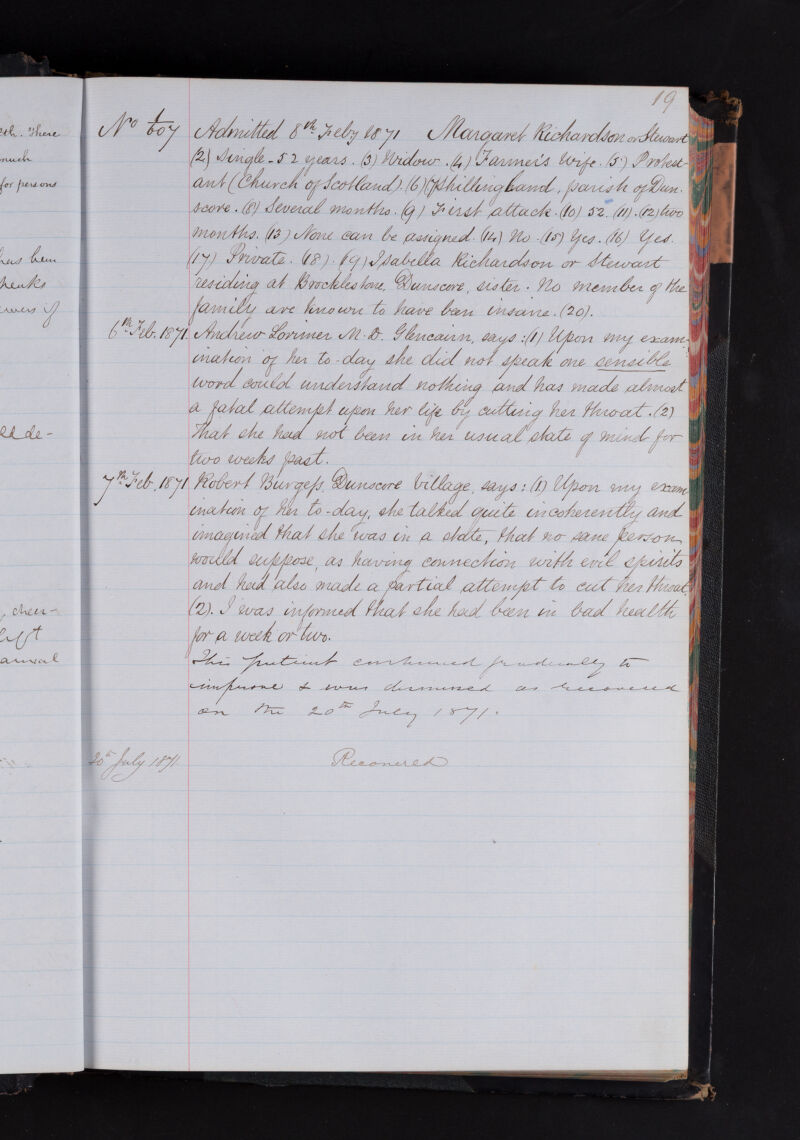 19
No 1/607 Admitted 8th Feby 1871 Margaret Richardson or Stewart
(2) Single - 52 years. (3) Widow. (4) Farmer's Wife. (5) Protest-
ant (Church of Scotland). (6) (7) Shillingland, parish of Dun-
score. (8) Several months. (9) First attack. (10) 52. (11). (12) two
months. (13) None can be assigned. (14) No. (15) Yes. (16) Yes.
(17) Private. (18). (19) Isabella Richardson or Stewart
residing at Brocklestone, Dunscore, sister. No member of the
family are known to have been insane. (20).
6th Feb. 1871. Andrew Lorimer M.D. Glencairn, says: (1) Upon my exam-
ination of her to-day she did not speak one sensible
word could understand nothing and has made almost
a fatal attempt upon her life by cutting her throat. (2)
That she had not been in her usual state of mind for
two weeks past.
7th Feb. 1871 Robert Burgess, Dunscore Village, says: (1) Upon my exam-
ination of her to-day, she talked quite incoherently and
imagined that she was in a state, that no sane person
would suppose, as having connection with evil spirits
and had also made a partial attempt to cut her throat.
(2). I was informed that she had been in bad health
for a week or two.
This patient continued gradually to
improve & was dismissed as recovered
on the 20th July 1871.
20th July 1871 Recovered
eoh. There
much
for persons
has been
if
ed de-
, cheer-
left